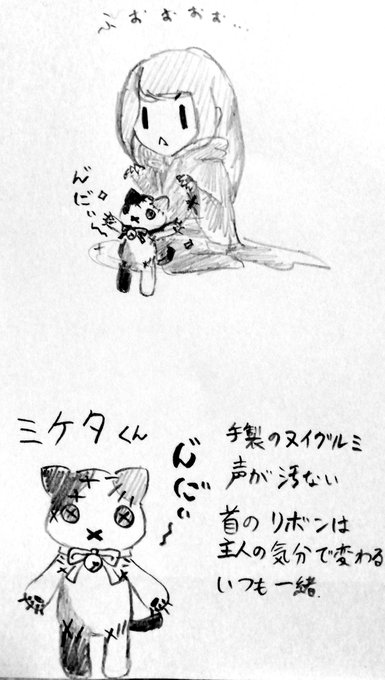 おぉぉぉぉ…
ん゛にぃ〜
ミケタくん
ん゛にぃ〜
手製のヌイグルミ
声が汚ない
首のリボンは
主人の気分で変わる
いつも一緒.